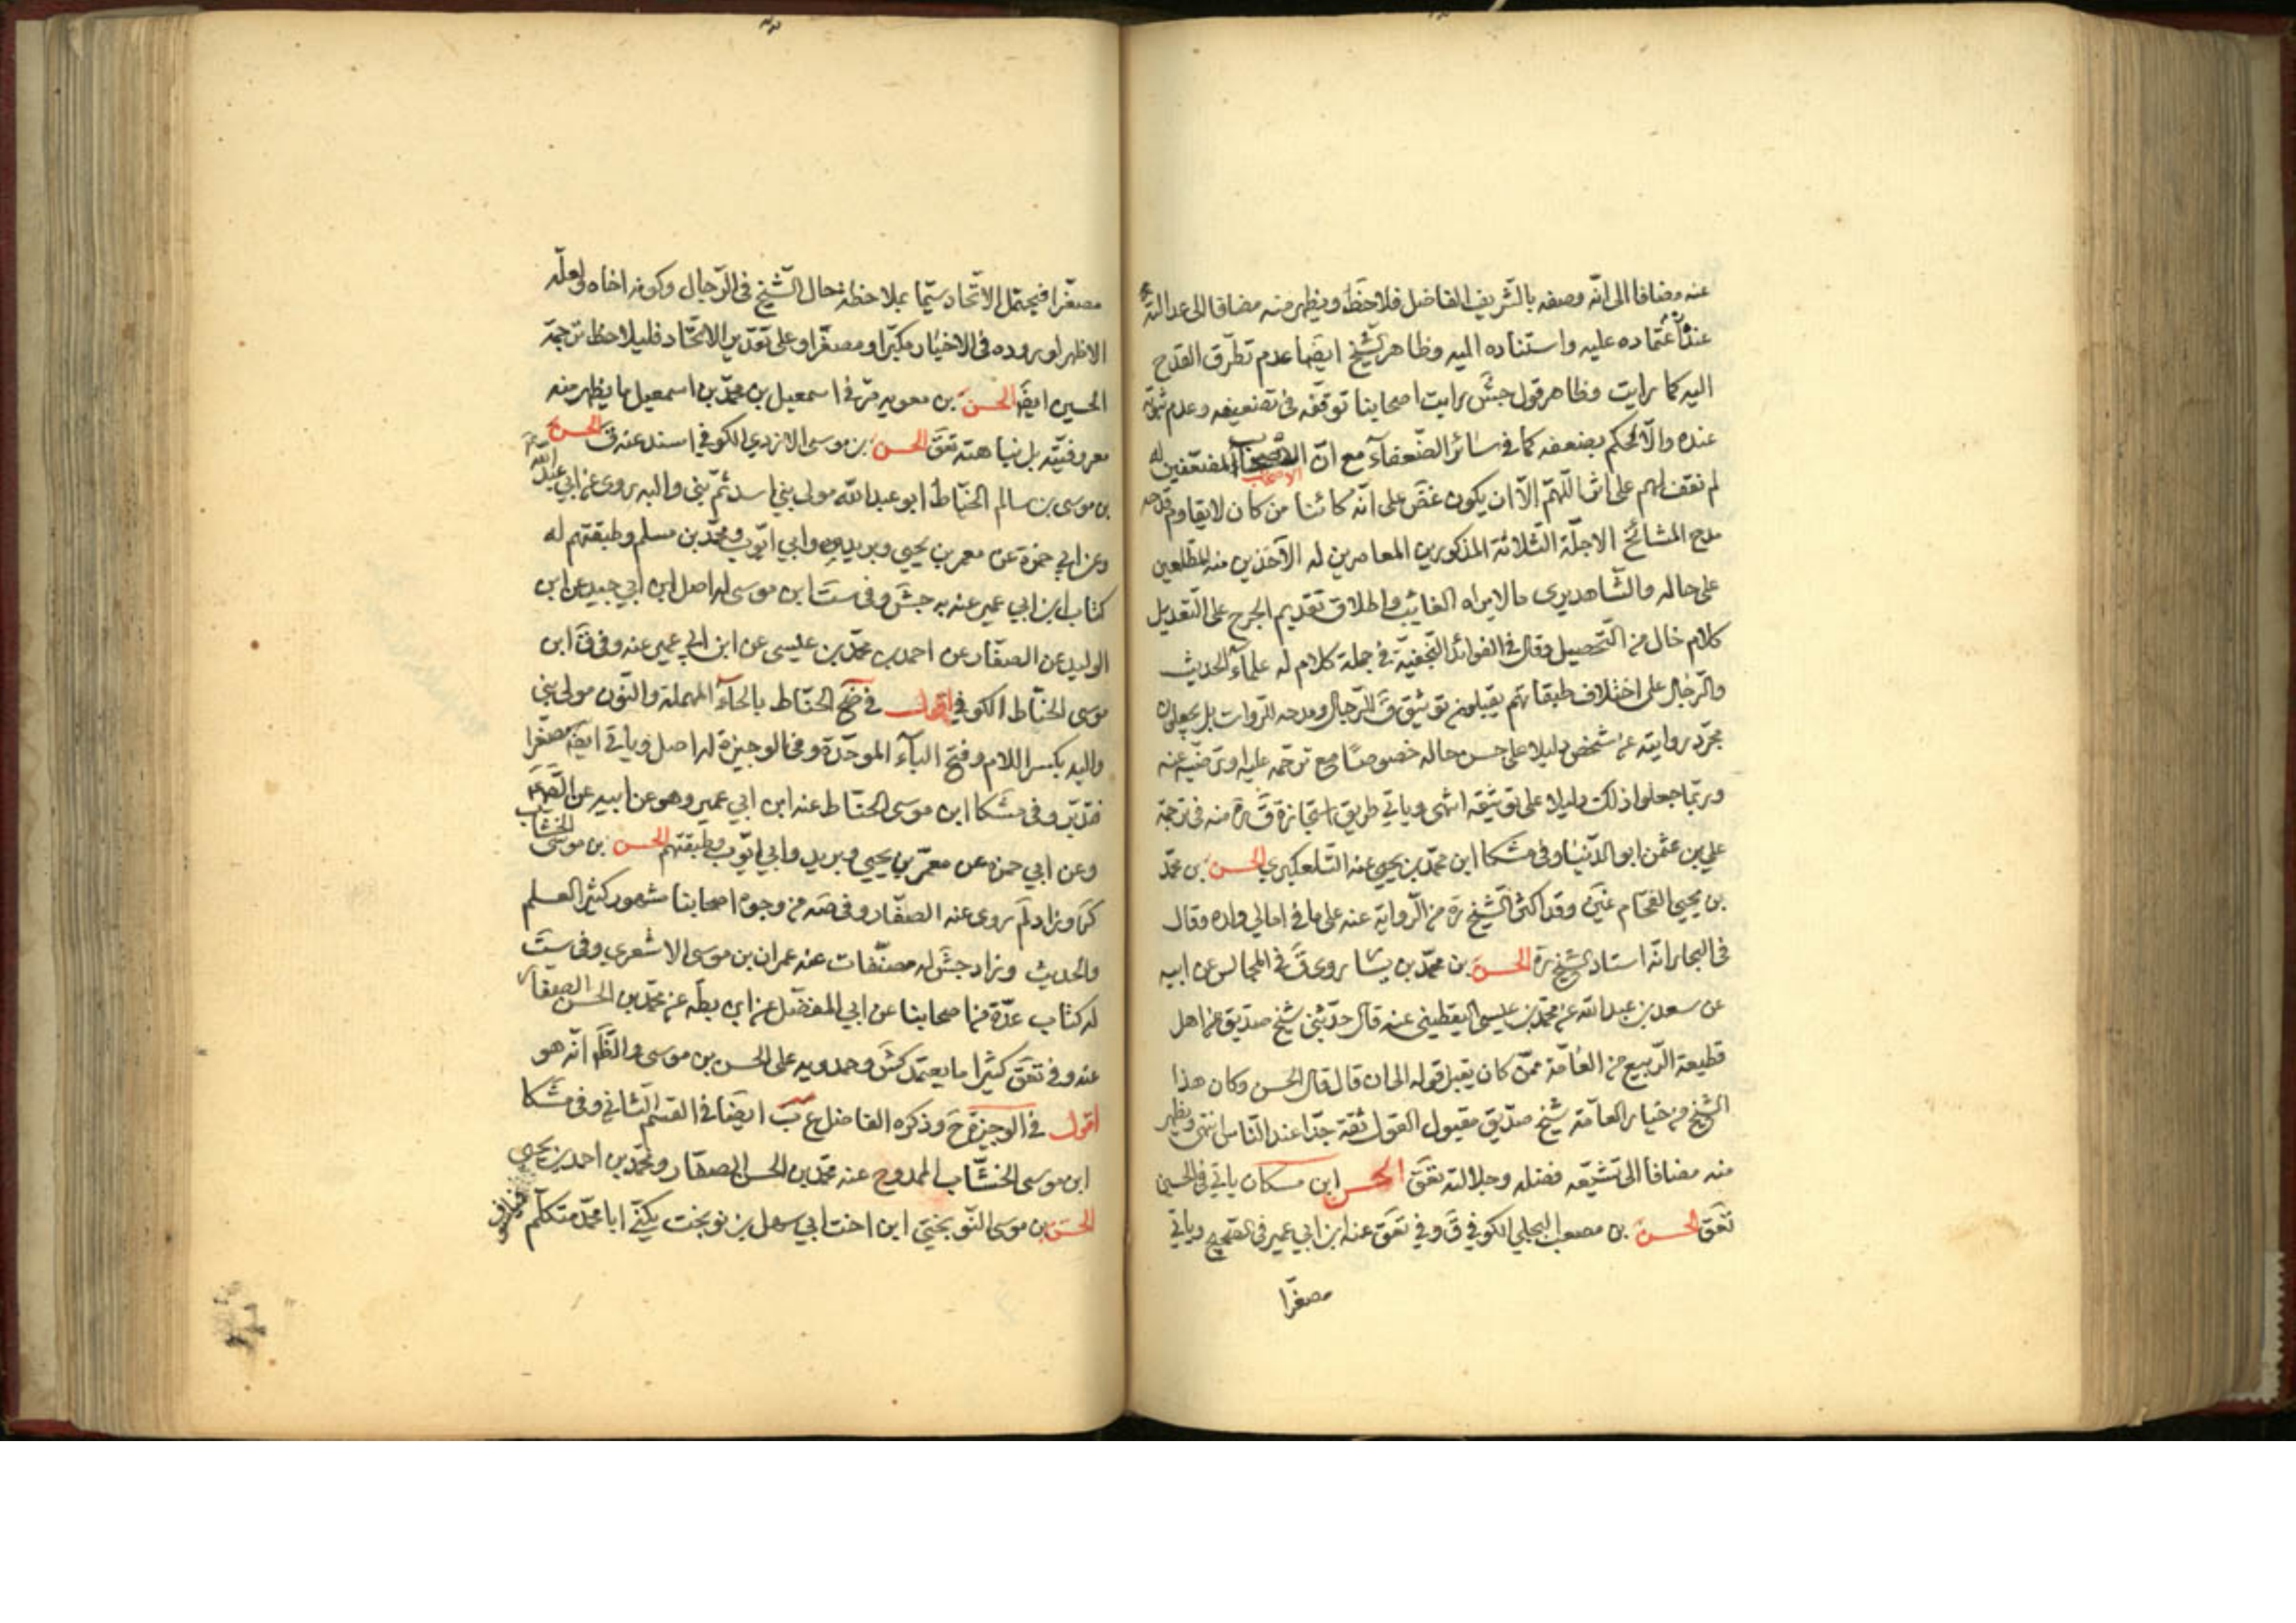 عنه مضافا الى انّه وصفه بالشّريف الفاضل فلاحظ ويظهر منه مضافا الى عدالته
عنده اعتماده عليه واستناده اليه وظاهر الشّيخ ايضا عدم تطرّق القدح
اليه كما رايت وظاهر قول جش رايت اصحابنا توقّفه فى تضعيفه وعدم ثبوته
عنده والّا لحكم بضعفه كما فى سائر الضّعفآء مع انّ الاصحاب المضعّفين له
لم نقف لهم على اللّهمّ الّا ان يكون غض على انّه كائنا من كان لا يقاوم قدحه
مدح المشائخ الاجلّة الثّلاثة المذكورين المعاصرين له الآخذين منه المطّلعين
على حاله والشّاهد يرى ما لا يراه الغائب واطلاق تقديم الجرح على التّعديل
كلام خال من التّحصيل وقال فى الفوائد النّجفيّة فى جملة كلام له علمآء الحديث
والرّجال على اختلاف طبقاتهم يقبلون توثيق ق للرّجال ومدحه للروات بل يجعلون
مجرّد روايته عن شخص دليلا على حسن حاله خصوصا مع ترحّمه عليه او ترضّيه عنه
وربّما جعلوا ذلك دليلا على توثيقه انتهى وياتي طريق استجازة ق رة منه فى ترجمة
علي بن عثمن ابو الدّنيا وفى مشكا ابن محمّد بن يحيى عنه التّلعكبري الحسن بن محمّد
بن يحيى الفحّام غين وقد اكثر الشّيخ رة من الرّواية عنه على ما في امالي ولده وقال
فى البحار انّه استاد الشيخ رة الحسن بن محمّد بن يسّا روى ق فى المجالس عن ابيه
عن سعد بن عبد الله عن محمّد بن عيسى اليقطيني عنه قال حدّثني شيخ صديق من اهل
قطيعة الرّبيع من العامّة ممّن كان يقبل قوله الى ان قال قال الحسن وكان هذا
الشّيخ من خيار العامّة شيخ صدّيق مقبول القول ثقة جدّا عند النّاس انتهى ويظهر
منه مضافا الى تشيّعه فضله وجلالته تعق الحسن ابن مسكان ياتي فى الحسين
تعق الحسن بن مصعب البجلي الكوفي ق وفي تعق عنه ابن ابي عمير فى الصّحيح وياتي
مصغّرا
مصغّرا فيحتمل الاتّحاد سيّما بملاحظة حال الشّيخ فى الرّجال وكونه اخاه ولعلّه
الاظهر لوروده فى الاخبار مكبّرا ومصغّرا وعلى تقدير الاتّحاد فليلاحظ ترجمة
الحسين ايضا الحسن بن معوية مرّ في اسمعيل بن محمّد بن اسمعيل ما يظهر منه
معروفيّته بل نباهته تعق الحسن بن موسى الازدي الكوفي اسند عنه ق الحسن
بن موسى بن سالم الحنّاط ابو عبد الله مولى بني اسد ثمّ بني والبه روى عن ابي عبد الله
وعن ابي حمزة عن معمر بن يحيى وبريد وابي ايّوب ومحمّد بن مسلم وطبقتهم له
كتاب ابن ابي عمير عنه به جش وفى ست ابن موسى له اصل ابن ابي جيد عن ابن
الوليد عن الصفّار عن احمد بن محمّد بن عيسى عن ابن ابي عمير عنه وفى ق ابن
موسى الحنّاط الكوفي اقول في ضح الحنّاط بالحآء المهملة والنّون مولى بني
والبه بكسر اللام وفتح البآء الموحّدة وفى الوجيزة له اصل وياتي ايضا مصغّرا
فتدبّر وفى مشكا ابن موسى الحنّاط عنه ابن ابي عمير وهو عن ابيه عن
وعن ابي حمزة عن معمّر بن يحيى وبريد وابي ايّوب وطبقتهم الحسن بن موسى الخشّاب
كر وزاد لم روى عنه الصفّار وفى صه من وجوه اصحابنا مشهور كثير العلم
والحديث وزاد جش له مصنّفات عنه عمران بن موسى الاشعري وفى ست
له كتاب عدّة من اصحابنا عن ابي المفضّل عن ابن بطّه عن محمّد بن الحسن الصفّار
عنه وفى تعق كثيرا ما يعتمد كش وحمدويه على الحسن بن موسى والظّ انّه هو
اقول في الوجيزة ح وذكره الفاضل ع ب ايضا في القسم الثاني وفى مشكا
ابن موسى الخشّاب الممدوح عنه محمّد بن الحسن الصفّار ومحمّد بن احمد بن يحيى
الحسن بن موسى النّوبختي ابن اخت ابي سهل بن نوبخت يكنّى ابا محمّد متكلّم فيلسوف